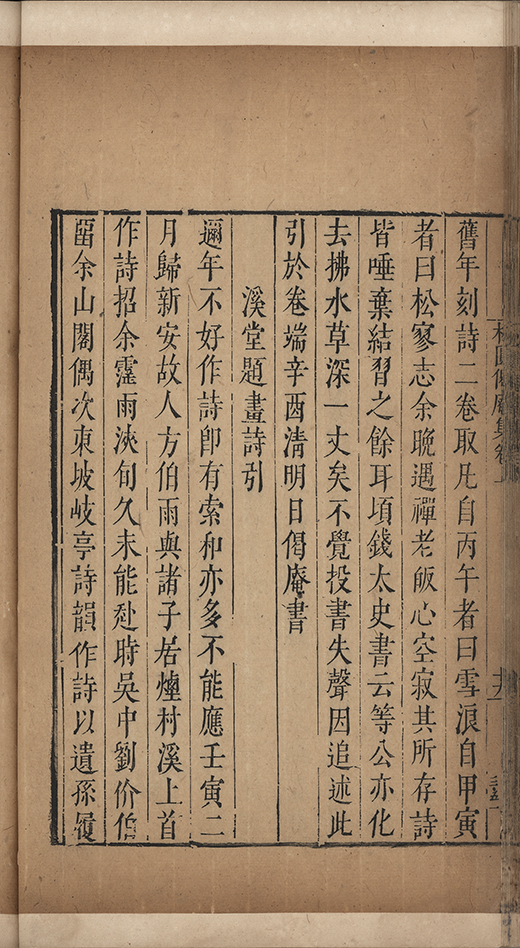 舊年刻詩二卷取凡自丙午者曰雪浪自甲寅
者曰松寥志余晚遇禪老皈心空寂其所存詩
皆唾棄結習之餘耳頃錢太史書云等公亦化
去拂水草深一丈矣不覺投書失聲因追述此
引於卷端辛酉清明日偈庵書
溪堂題畫詩引
邇年不好作詩卽有索和亦多不能應壬寅二
月歸新安故人方伯雨與諸子居煙村溪上首
作詩招余霪雨浹旬久未能赴時吳中劉价伯
畱余山閣偶次東坡岐亭詩韻作詩以遺孫履